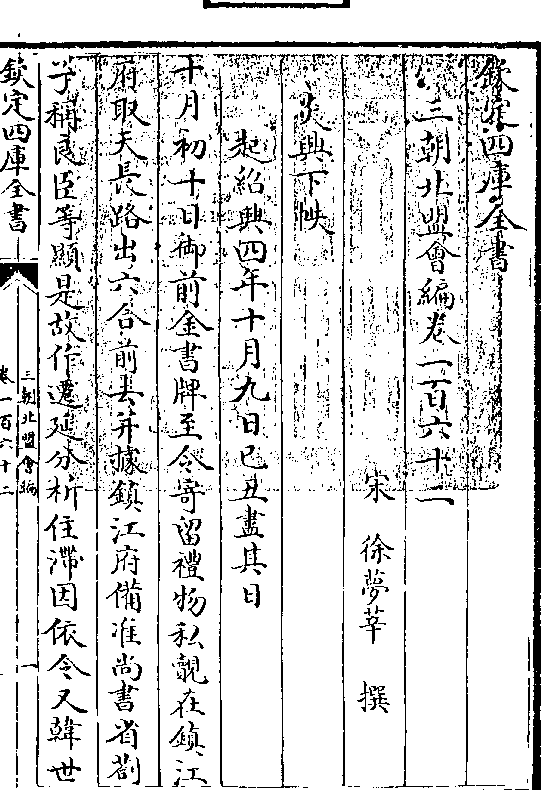 欽定四庫全書
三朝北盟會編卷一百六十二
宋 徐夢莘 撰
炎興下帙
起紹興四年十月九日己丑盡其日
十月初十日御前金書牌至令寄留禮物私覿在鎮江
府取天長路出六合前去并據鎮江府備准尚書省劄
子稱良臣等顯是故作遷延分析住滯因依令又韓世
欽定四庫全書
三朝北盟會編
卷一百六十二
一